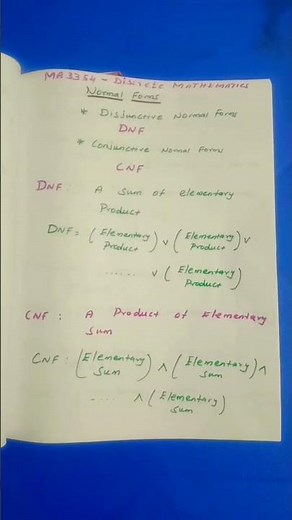 MA3354 - Discrete Mathematics
Normal Forms
* Disjunctive Normal Forms
DNF
* Conjunctive Normal Forms
CNF
DNF : A sum of elementary
Product
DNF = (Elementary Product) ∨ (Elementary Product) ∨
...... ∨ (Elementary Product)
CNF : A Product of Elementary
Sum
CNF : (Elementary Sum) ∧ (Elementary Sum) ∧
.... ∧ (Elementary Sum)